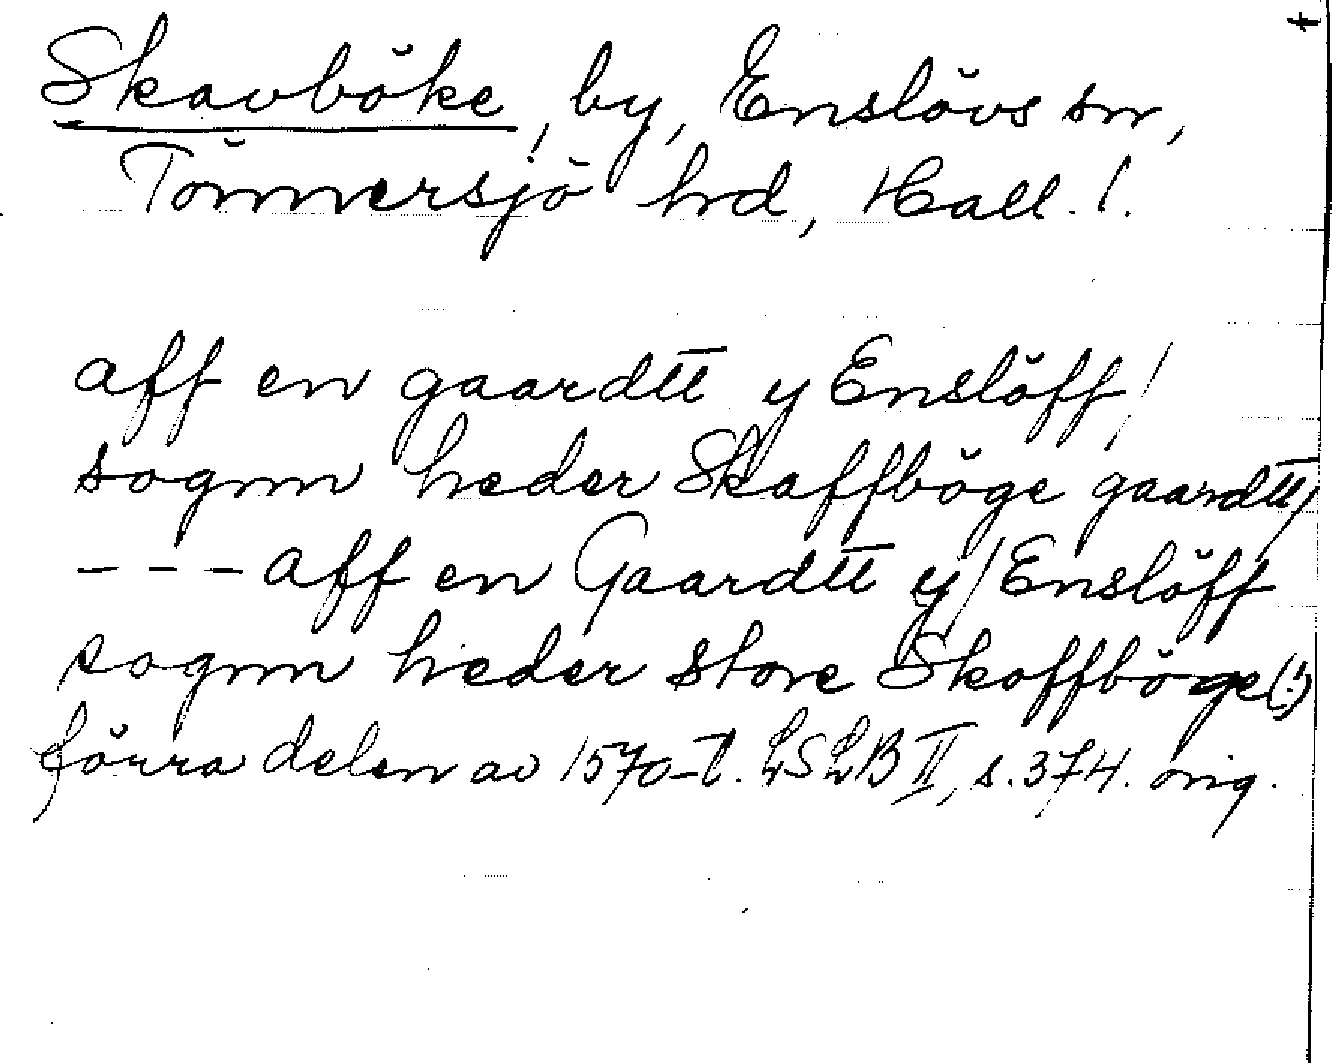 Skavböke, by, Enslövs sn,
Tönnersjö hrd, Hall. l.
aff en gaardtt y Enslöff/
sognn heder Skaffböge gaardtt/
---aff en Gaardtt y/Enslöff
sognn heder store Skoffböge(!)
förra delen av 1570-t. LSLB II, s.374. orig.